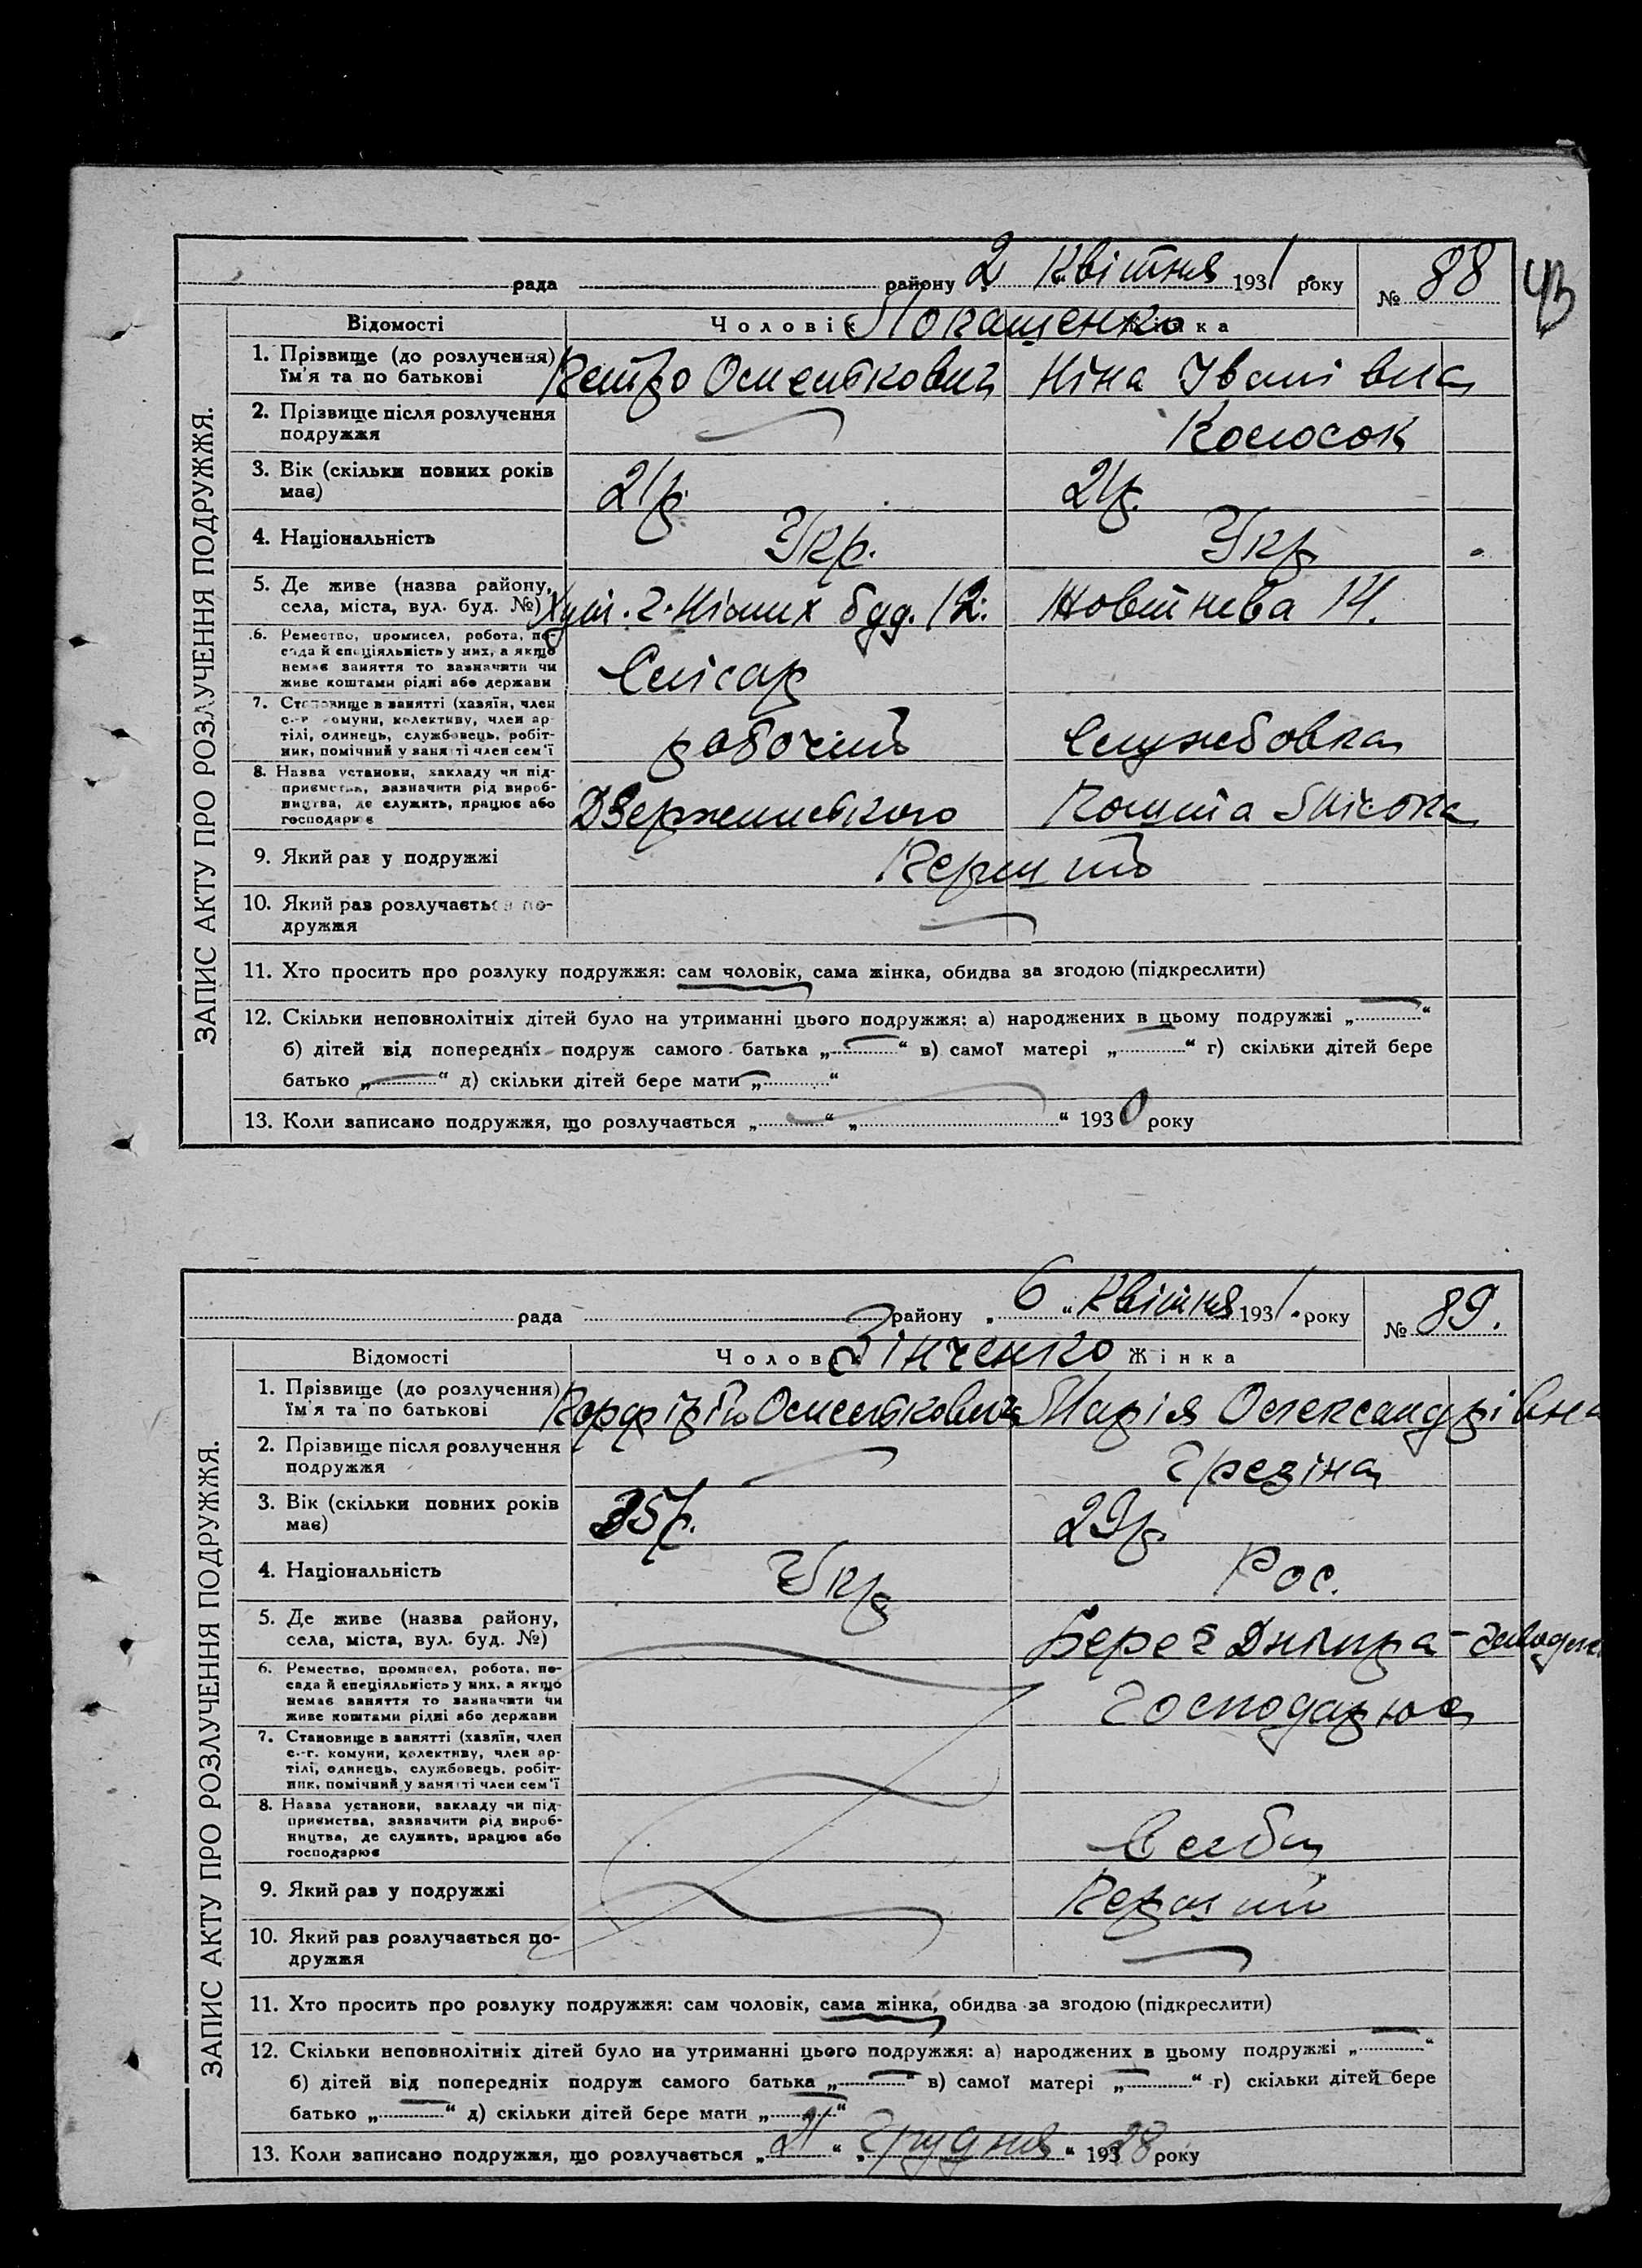 рада району 2 Квітня 1931 року № 88
Відомості Чоловік Жінка
1. Прізвище (до розлучення)
їм'я та по батькові
Ніна Іванівна
2. Прізвище після розлучення
подружжя
Колосок
3. Вік (скільки повних років
має)
21р. 21р.
4. Національність
Укр. Укр
5. Де живе (назва району,
села, міста, вул. буд. №)
буд. 12. Жовтнева 14.
6. Ремество, промисел, робота, по-
сада й спеціяльність у них, а якщо
немає заняття то зазначити чи
живе коштами рідні або держави
Слісар
7. Становище в занятті (хазяїн, член
с.-г. комуни, колективу, член ар-
тілі, одинець, службовець, робіт-
ник, помічний у занятті член сем'ї
робочий Службовка
8. Назва установи, закладу чи під-
приємства, зазначити рід вироб-
ництва, де служить, працює або
господарює
Дзержинського
9. Який раз у подружжі
Перший
10. Який раз розлучається по-
дружжя
11. Хто просить про розлуку подружжя: сам чоловік, сама жінка, обидва за згодою (підкреслити)
12. Скільки неповнолітніх дітей було на утриманні цього подружжя: а) народжених в цьому подружжі „............“
б) дітей від попередніх подруж самого батька „............“ в) самої матері „............“ г) скільки дітей бере
батько „............“ д) скільки дітей бере мати „............“
13. Коли записано подружжя, що розлучається „............“ „............“ 1930 року
ЗАПИС АКТУ ПРО РОЗЛУЧЕННЯ ПОДРУЖЖЯ.
рада району „6“ Квітня 1931 року № 89.
Відомості Чоловік Жінка
Зінченко
1. Прізвище (до розлучення)
їм'я та по батькові
Марія Олександрівна
2. Прізвище після розлучення
подружжя
Грезіна
3. Вік (скільки повних років
має)
35р. 29р.
4. Національність
Укр Рос.
5. Де живе (назва району,
села, міста, вул. буд. №)
Берег Дніпра -
6. Ремество, промисел, робота, по-
сада й спеціяльність у них, а якщо
немає заняття то зазначити чи
живе коштами рідні або держави
Господарює
7. Становище в занятті (хазяїн, член
с.-г. комуни, колективу, член ар-
тілі, одинець, службовець, робіт-
ник, помічний у занятті член сем'ї
8. Назва установи, закладу чи під-
приємства, зазначити рід вироб-
ництва, де служить, працює або
господарює
9. Який раз у подружжі
Перший
10. Який раз розлучається по-
дружжя
11. Хто просить про розлуку подружжя: сам чоловік, сама жінка, обидва за згодою (підкреслити)
12. Скільки неповнолітніх дітей було на утриманні цього подружжя: а) народжених в цьому подружжі „............“
б) дітей від попередніх подруж самого батька „............“ в) самої матері „............“ г) скільки дітей бере
батько „............“ д) скільки дітей бере мати „............“
13. Коли записано подружжя, що розлучається „21“ „Грудня“ 19328 року
ЗАПИС АКТУ ПРО РОЗЛУЧЕННЯ ПОДРУЖЖЯ.